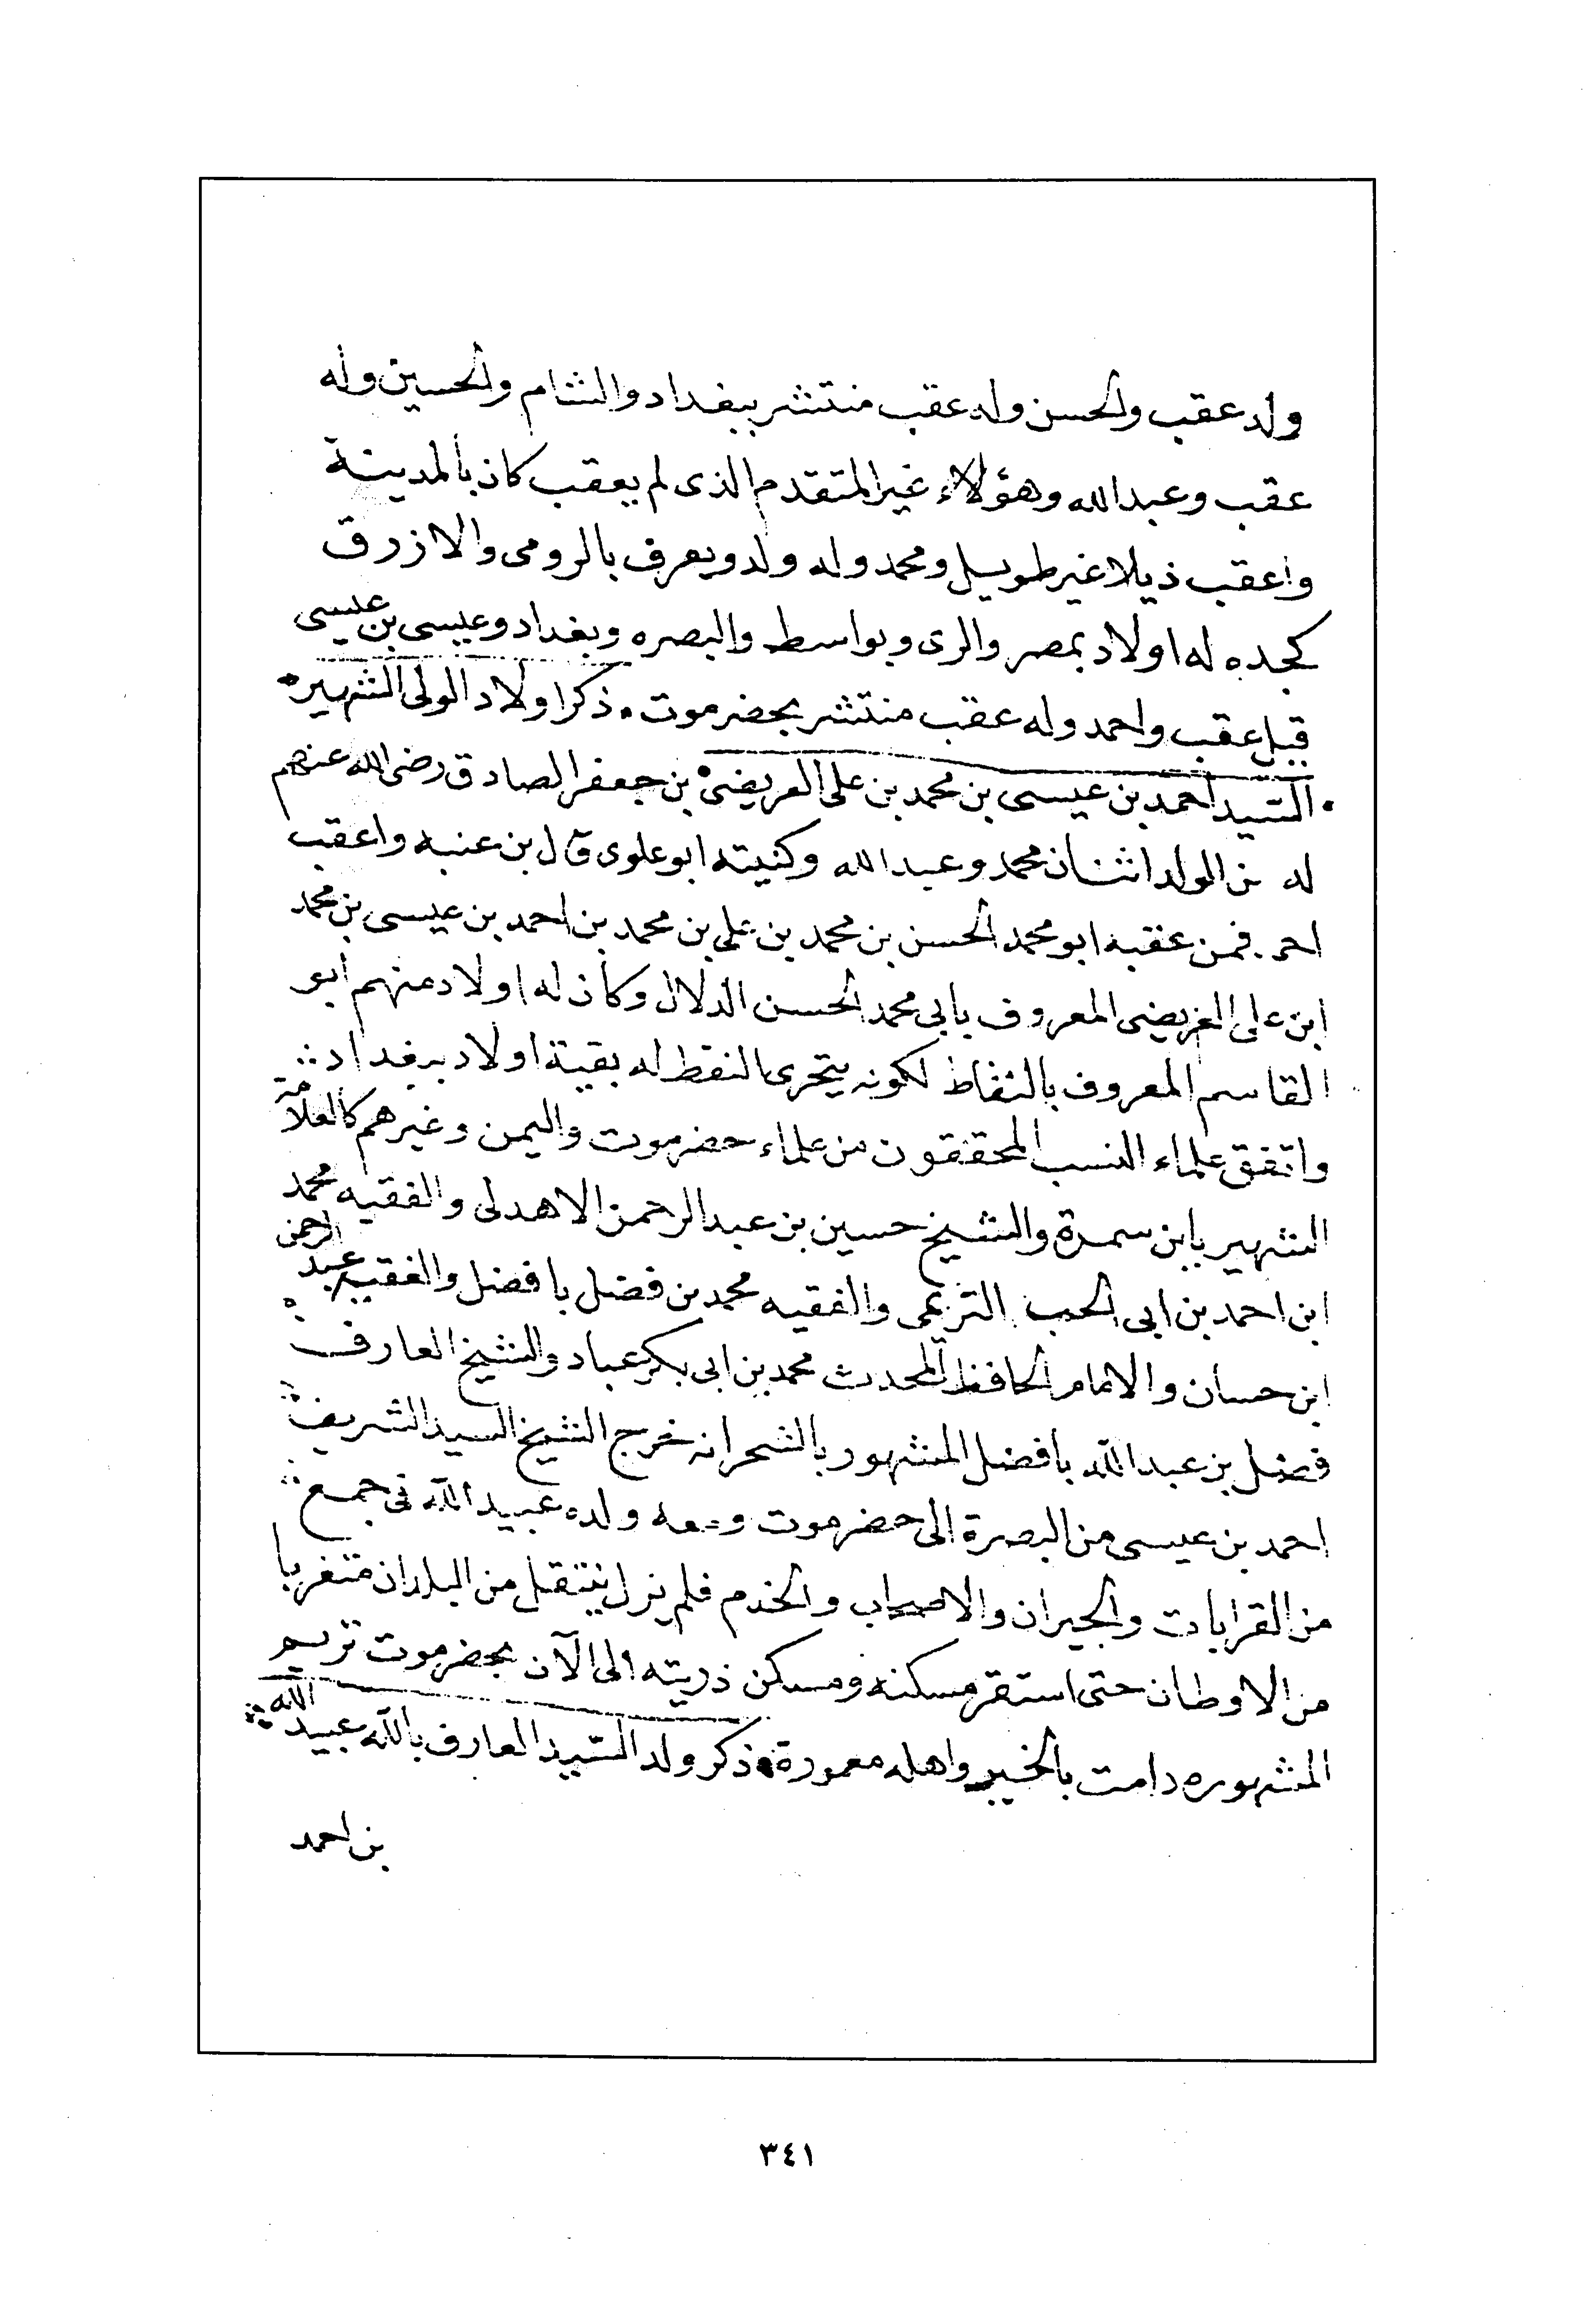 وله عقب والحسن وله عقب منتشر ببغداد والشام والحسين وله
عقب وعبدالله وهؤلاء غير المتقدم الذى لم يعقب كان بالمدينة
واعقب ذيلا غير طويل ومحمد وله ولد ويعرف بالرومى والازرق
كجده له اولاد بمصر والرى وبواسط والبصره وبغداد وعيسى بن عيسى
قبل عقب واحمد وله عقب منتشر بحضرموت ذكر اولاد الولى الشهير
السيد احمد بن عيسى بن محمد بن على العريضى بن جعفر الصادق رضى الله عنهم
له من الولد اثنان محمد وعبدالله وكنيته ابوعلوى قال بن عنبه واعقب
احمد فمن عقبه ابو محمد الحسن بن محمد بن على بن محمد بن احمد بن عيسى بن محمد
ابن على العريضى المعروف بابى محمد الحسن الدلال وكان له اولاد منهم أبو
القاسم المعروف بالنفاط لكونه يتحرى النفط له بقية اولاد ببغداد
واتفق علماء النسب المحققون من علماء حضرموت واليمن وغيرهم كالعلامة
الشهير بابن سمرة والشيخ حسين بن عبدالرحمن الاهدلى والفقيه محمد
ابن احمد بن ابى الحب التريمى والفقيه محمد بن فضل بافضل والفقيه عبد الرحمن
ابن حسان والامام الحافظ المحدث محمد بن ابى بكر عباد والشيخ العارف
فضل بن عبدالله بافضل المشهور بالشحر انه خرج الشيخ السيد الشريف
احمد بن عيسى من البصرة الى حضرموت ومعه ولده عبيدالله فى جمع
من القرابات والجيران والاصحاب والخدم فلم يزل ينتقل من البلدان متغربا
من الاوطان حتى استقر مسكنه ومسكن ذريته الى الآن بحضرموت تريم
المشهوره دامت بالخير واهله معمورة ذكر ولد السيد العارف بالله عبيد الله
بن احمد
٣٤١